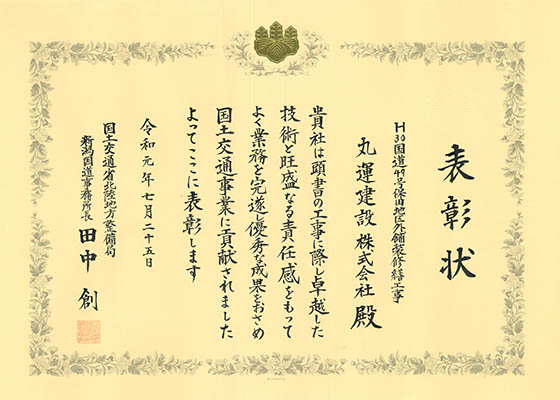 表彰状
H30国道49号保田地区外舗装修繕工事
丸運建設株式会社 殿
貴社は頭書の工事に際し卓越した
技術と旺盛なる責任感をもって
よく業務を完遂し優秀な成果をおさめ
国土交通事業に貢献されました
よってここに表彰します
令和元年七月二十五日
国土交通省北陸地方整備局
新潟国道事務所長 田中 創